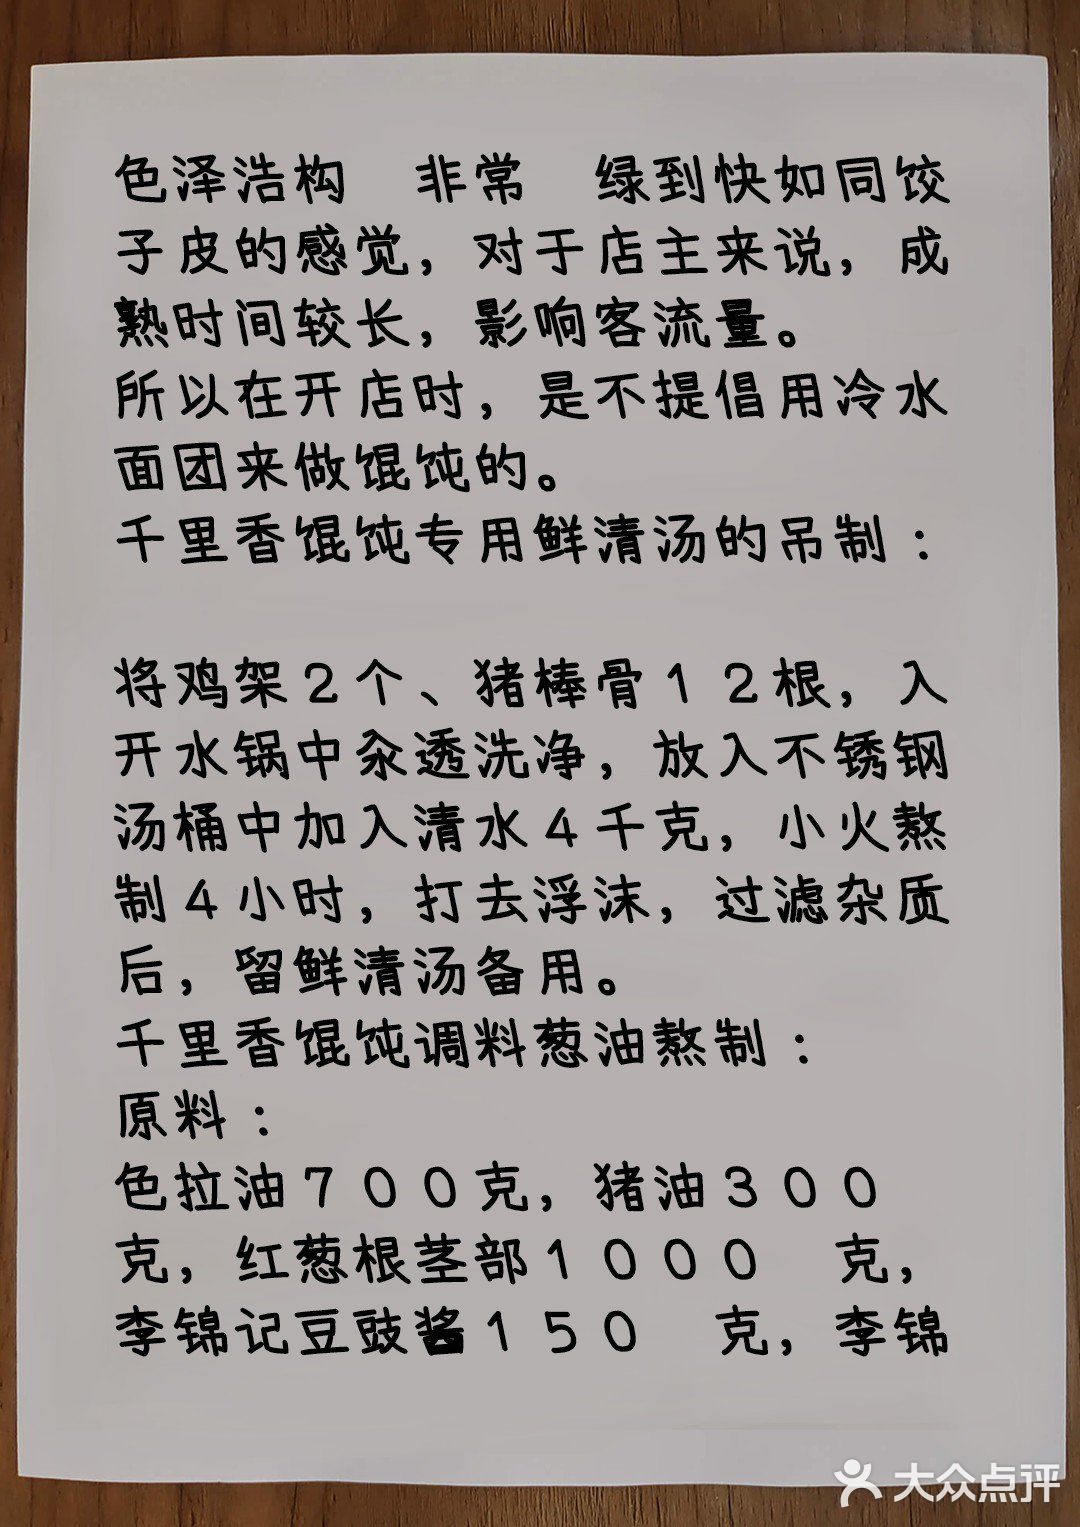 色泽浩构　非常　绿到快如同饺
子皮的感觉，对于店主来说，成
熟时间较长，影响客流量。
所以在开店时，是不提倡用冷水
面团来做馄饨的。
千里香馄饨专用鲜清汤的吊制：
将鸡架２个、猪棒骨１２根，入
开水锅中汆透洗净，放入不锈钢
汤桶中加入清水４千克，小火熬
制４小时，打去浮沫，过滤杂质
后，留鲜清汤备用。
千里香馄饨调料葱油熬制：
原料：
色拉油７００克，猪油３００
克，红葱根茎部１０００　克，
李锦记豆豉酱１５０　克，李锦
大众点评